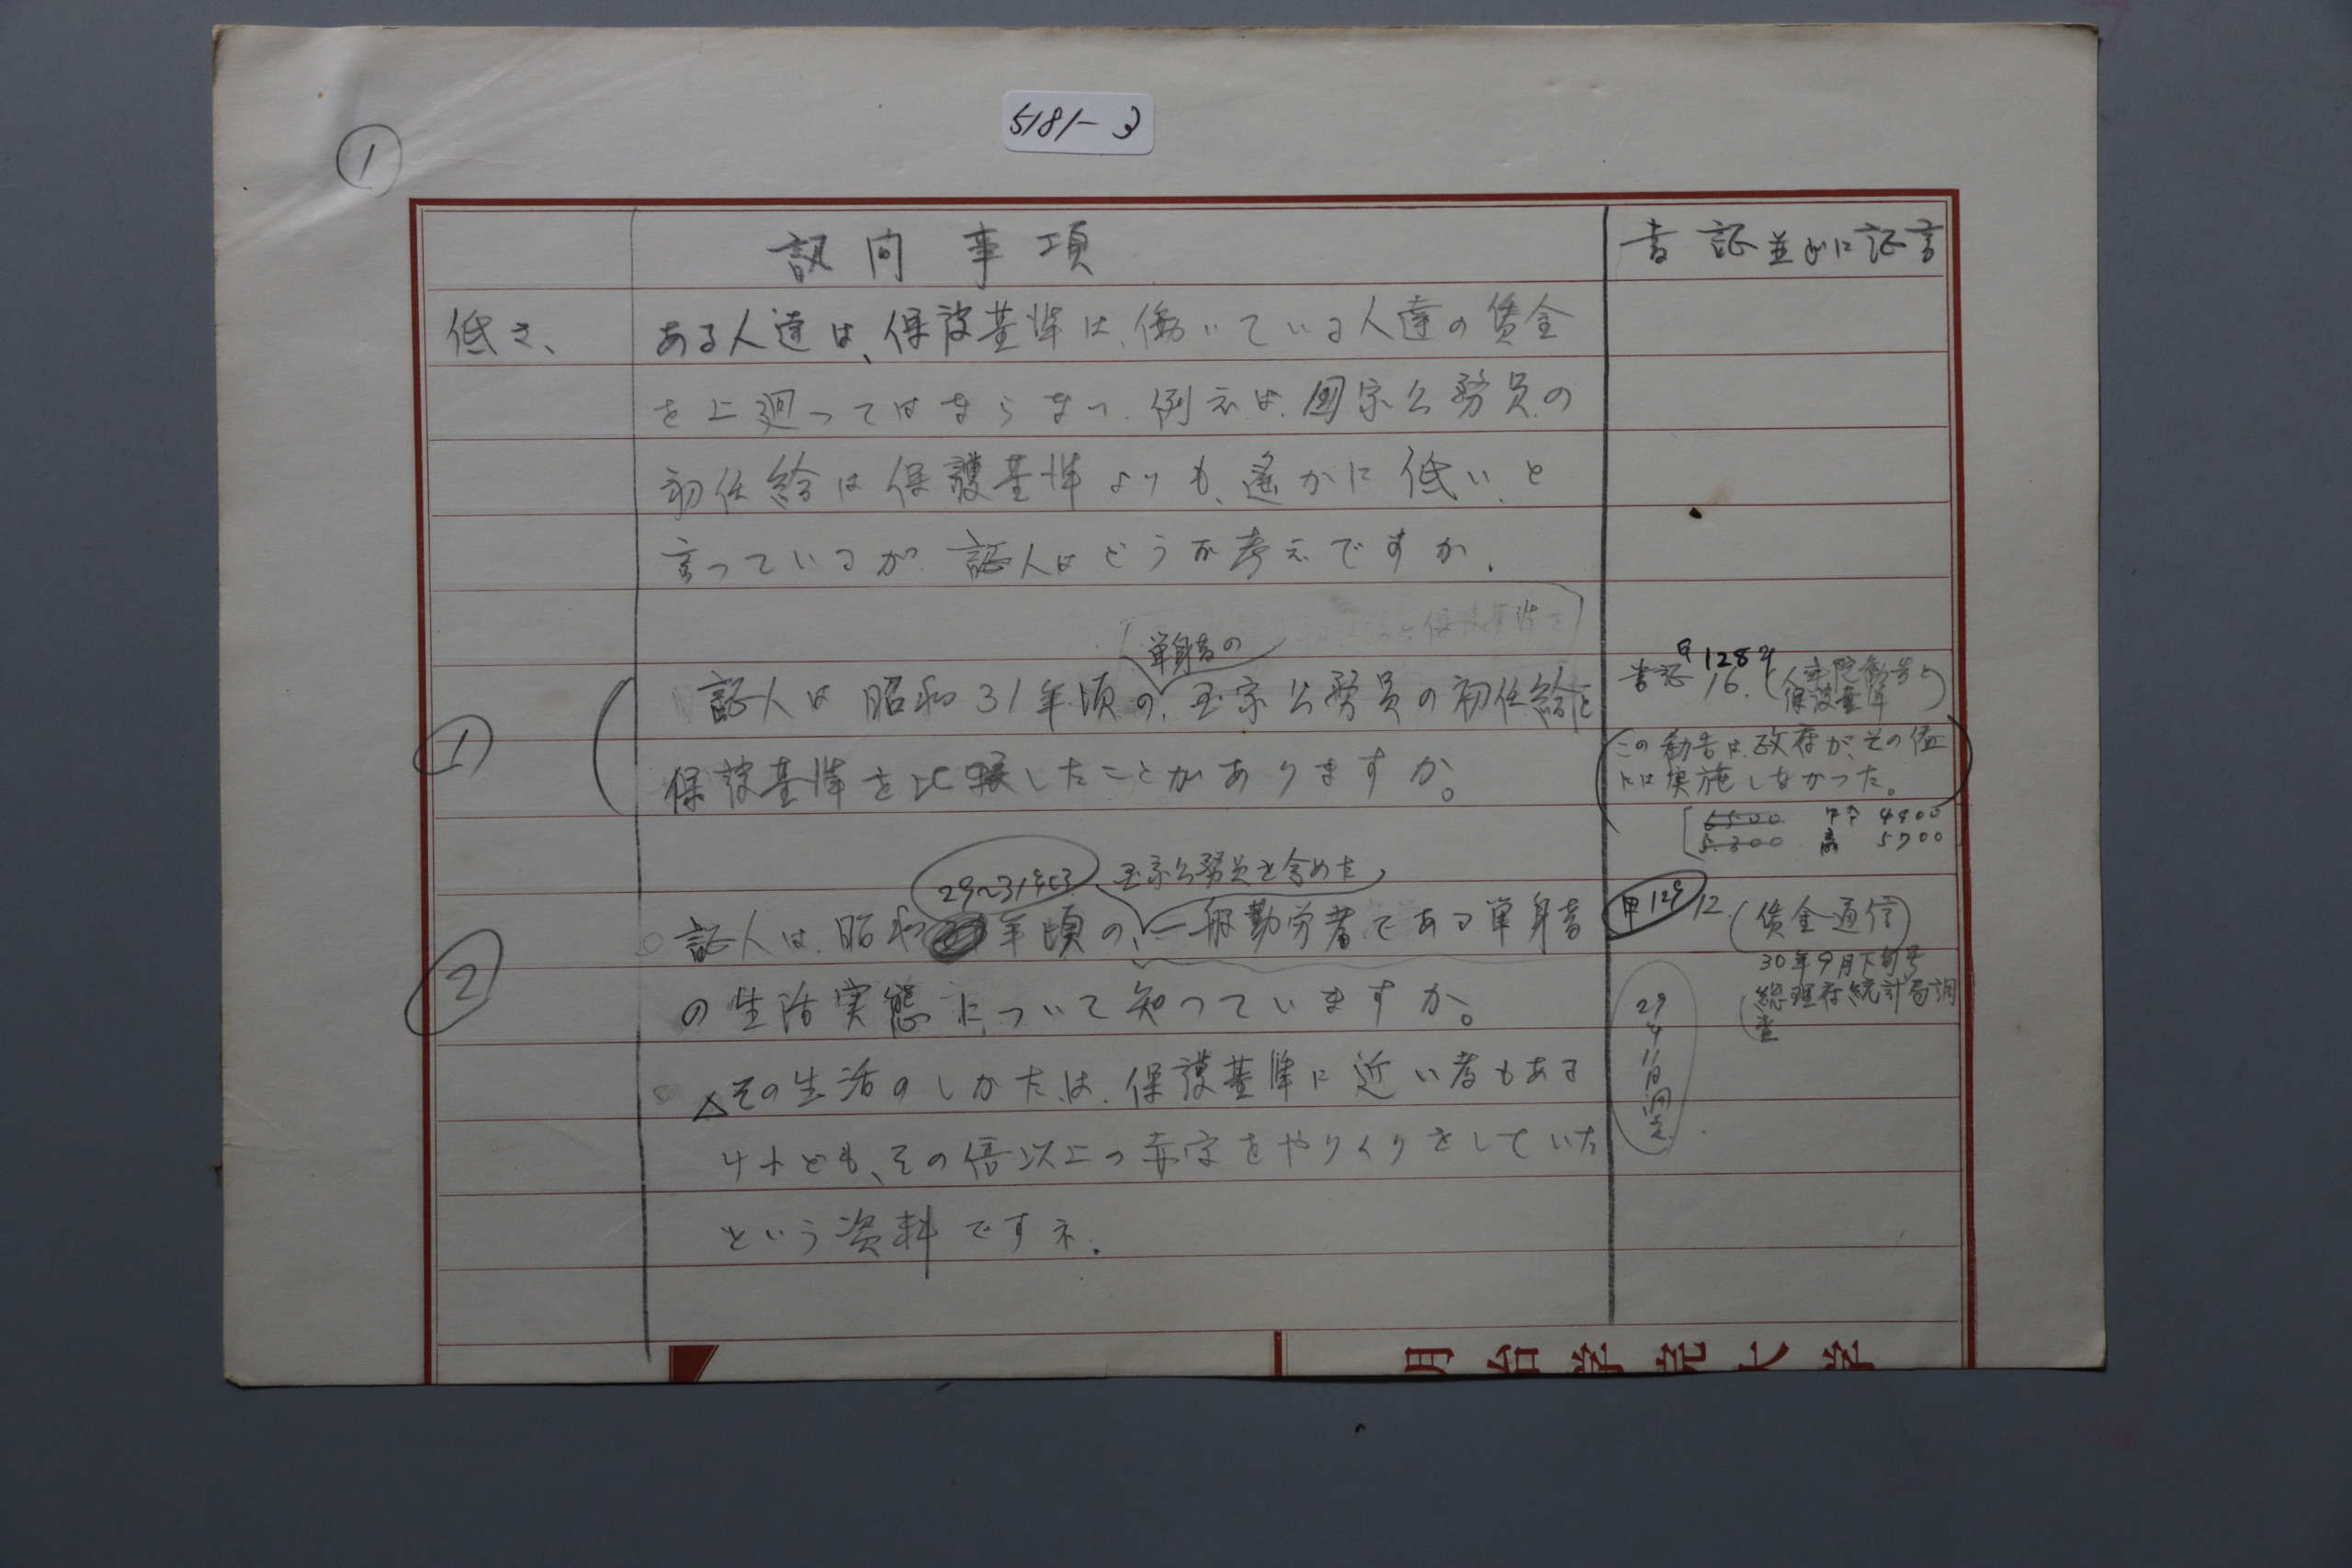 5181-3
①
訊问事項
書証並びに証言
低さ、
ある人達は、保護基準は、働いている人達の賃金
を上廻ってはならない。例えば、国家公務員の
初任給は保護基準よりも、遙かに低い、と
言っているが 証人はどうお考えですか。
単身者の
証人は昭和31年頃の、国家公務員の初任給と
保護基準を比較したことがありますか。
①
書証 甲128
16. (人事院勧告と
保護基準)
この勧告は、政府が、その値
には実施しなかった。
6500 中卒 4900
5.300 高 5700
29~31年頃 国家公務員を含めた
証人は、昭和 年頃の、一般勤労者である単身者
の生活実態について知っていますか。
②
甲129 12. (賃金通信)
30年9月下旬号
総理府統計局調
査
△その生活のしかたは、保護基準に近い者もある
けれども、その倍以上の赤字をやりくりをしていた
という資料ですネ。
明治学院大学